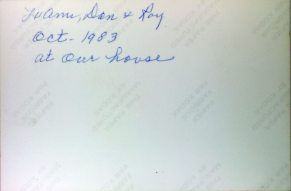 JoAnn, Don & Roy
Oct- 1983
at our house